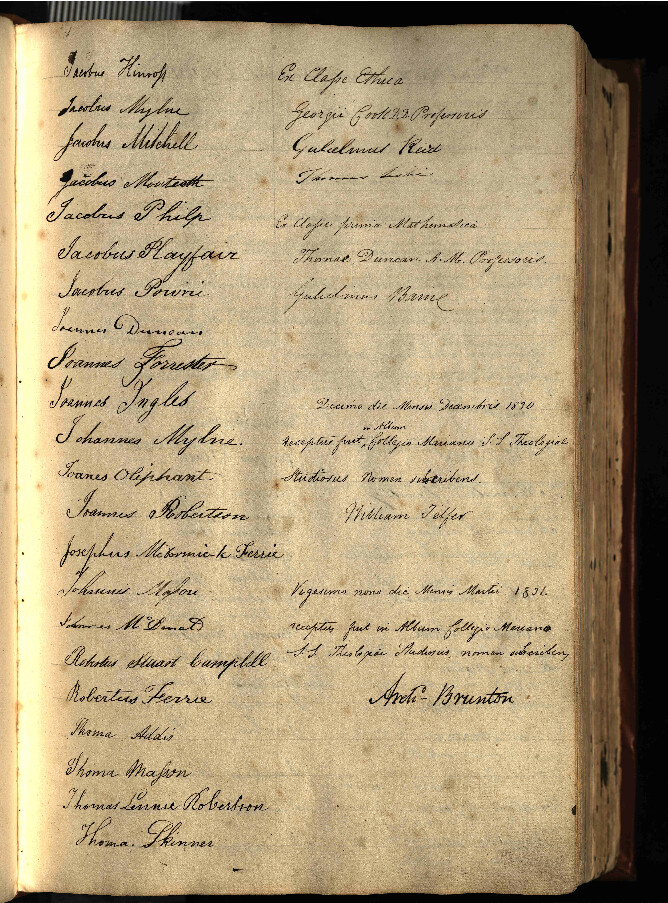 Jacobus Kinross
Jacobus Mylne
Jacobus Mitchell
Jacobus Monteath
Jacobus Philp
Jacobus Playfair
Jacobus Powrie
Joannes Duncan
Joannes Forrester
Joannes Ingles
Johannes Mylne.
Joanes Oliphant
Joannes Robertson
Josephus McCormick Ferrie
Johannes
Joannes McDonald
Robertus Stuart Campbell
Robertus Ferrie
Thoma Addis
Thoma Masson
Thomas Lennie Robertson
Thoma. Skinner
Ex Classe Ethica
Georgii Cook D.D. Professoris
Gulielmus Reid
Thomas
Ex Classe prima Mathematica
Thomae Duncan A.M. Professoris.
Gulielmus
Decimo die Mensis Decembris 1830
in Album
receptus fuit, Collegio Mariano S.S. Theologiae
Studiosus Nomen subscribens.
William Telfer
Vigesimo nono die Mensis Martii 1831.
receptus fuit in Album Collegio Mariano
S.S. Theologiae Studiosus, nomen subscribens
Archd. Brunton